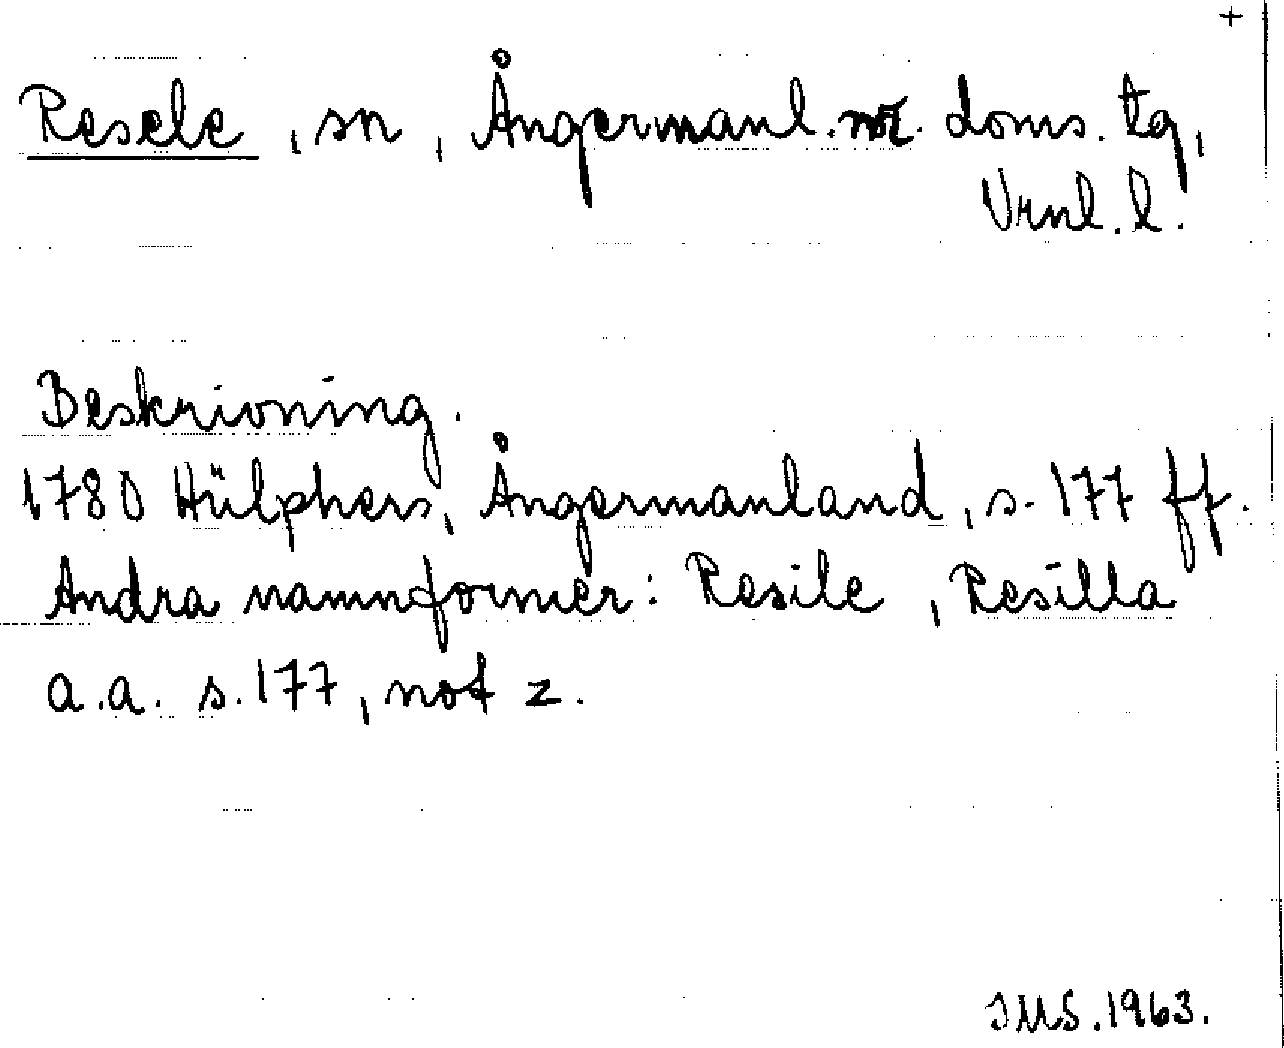 +
Resele, sn, Ångermanl. doms. tg,
Vrnl. l.
Beskrivning.
1780 Hülphers, Ångermanland, s. 177 ff.
Andra namnformer: Resile, Resilla
a.a. s. 177, not 2.
JMS. 1963.